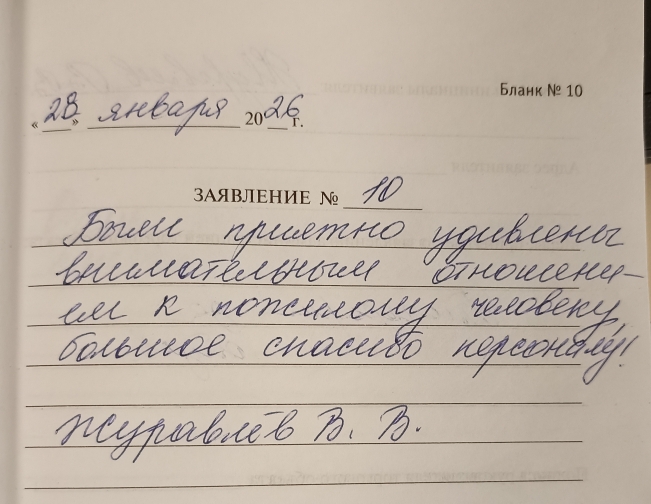 Бланк № 10
«28» января 2026 г.
ЗАЯВЛЕНИЕ № 10
Были приятно удивлены
внимательным отношени-
ем к пожилому человеку,
большое спасибо персоналу!
Журавлёв В. В.